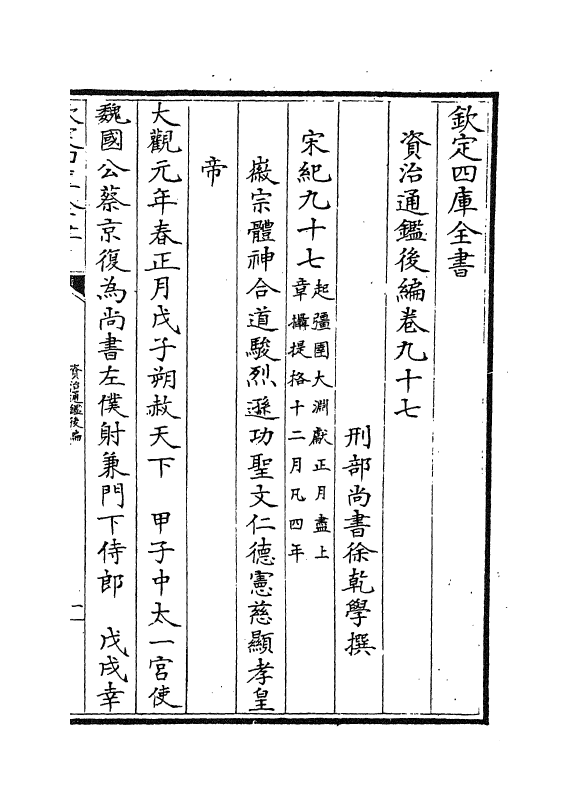 欽定四庫全書
資治通鑑後編卷九十七
刑部尚書徐乾學撰
宋紀九十七起彊圉大淵獻正月盡上
章攝提格十二月凡四年
徽宗體神合道駿烈遜功聖文仁德憲慈顯孝皇
帝
大觀元年春正月戊子朔赦天下　甲子中太一宮使
魏國公蔡京復為尚書左僕射兼門下侍郎　戊戌幸
資治通鑑後編